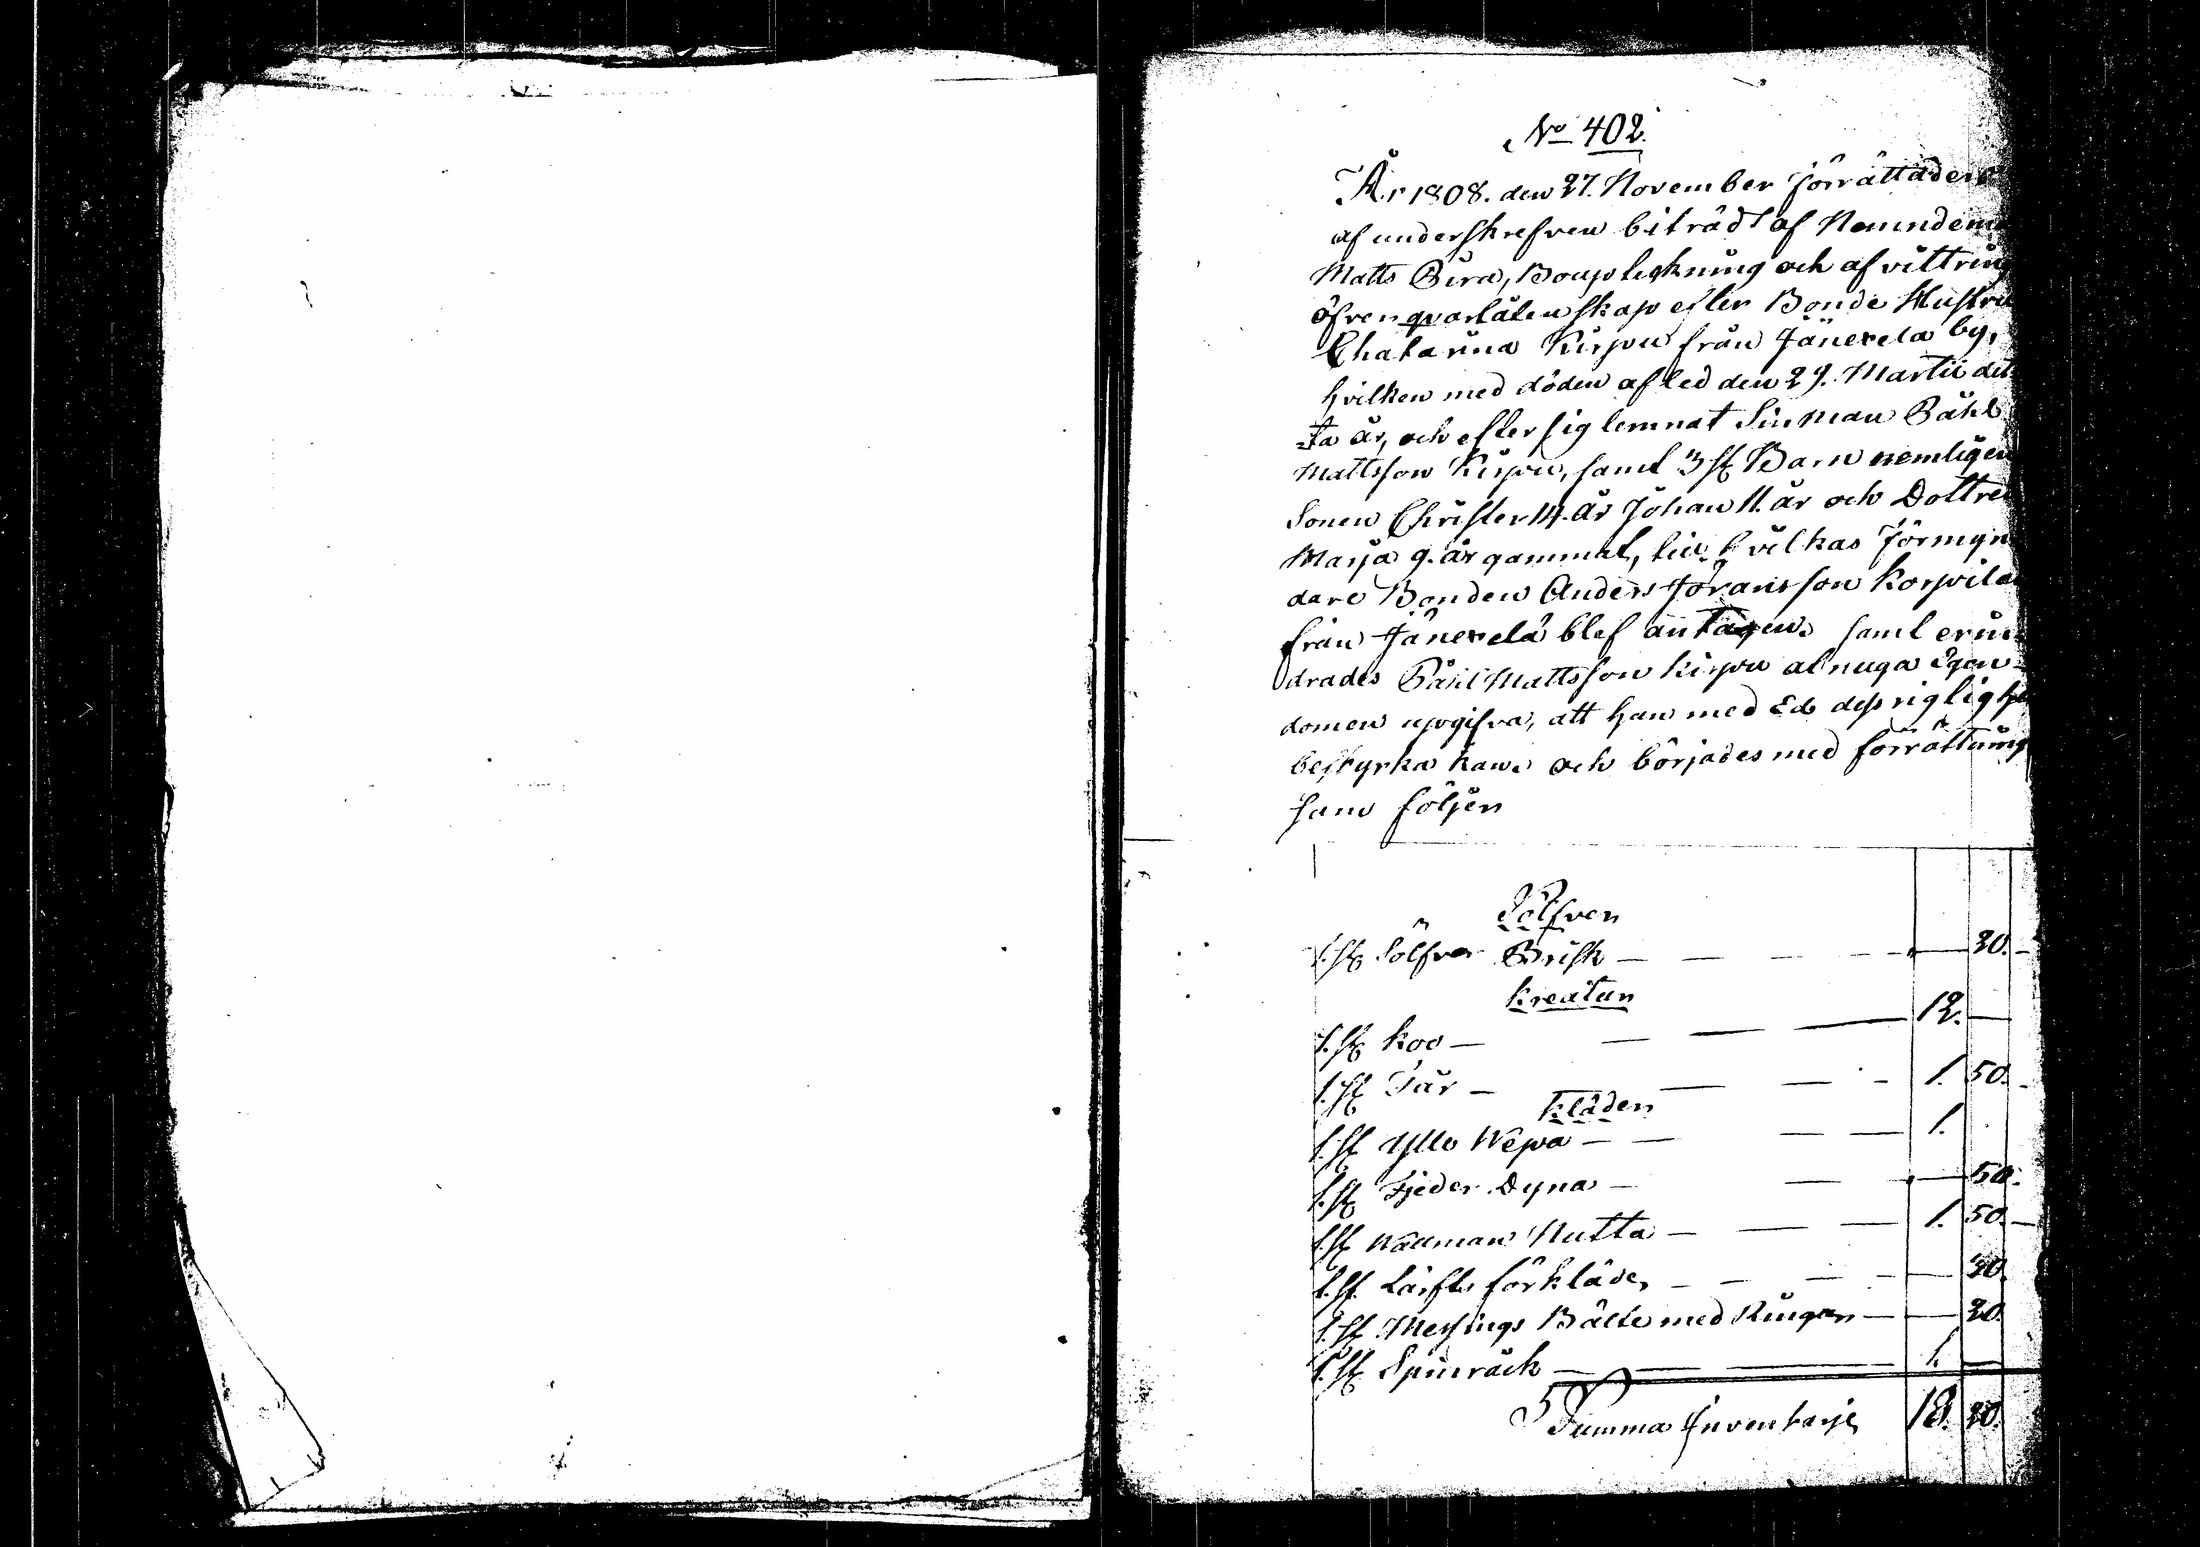 No 402.
År 1808. den 27. November förrättades
af underskrefven biträdt af Nemndem
Matts Bira, Boupteckning och afvittring
öfver qvarlåtenskap efter Bonde Hustru
Chatarina Kirpu från Jänexela by,
hvilken med döden afled den 29. Martii det
ta år, och efter sig lemnat Sin man Påhl
Mattsson Kirpu, samt 3 st Barn nemligen
Sonen Christer 14. år Johan 11. år och Dottren
Marja 9. år gammal, til hvilkas Förmyn
dare Bonden Anders Joransson Korpila
från Jänexelä blef antagen. samt erin
drades Påhl Mattsson Kirpu al noga Egen
domen upgifva, att han med Ed dess rigtighet
bestyrka kan. och börjades med förrättning
som följer
Sölfver
1. st Sölfver Brisk — 20. —
Kreatur
1. st Koo — 12. —
1. st Får — 1. 50. —
Kläder
1. st Ylle Wepa — 1.
1. st Fjeder Dyna — 50.
1. st Wallmans Nutta — 1. 50. —
1. st Lärfts förkläde, — 30.
1. st Messings Bälte med Ringar — 20.
1. st Spinråck — 1. —
Summa Inventarje 18. 20.